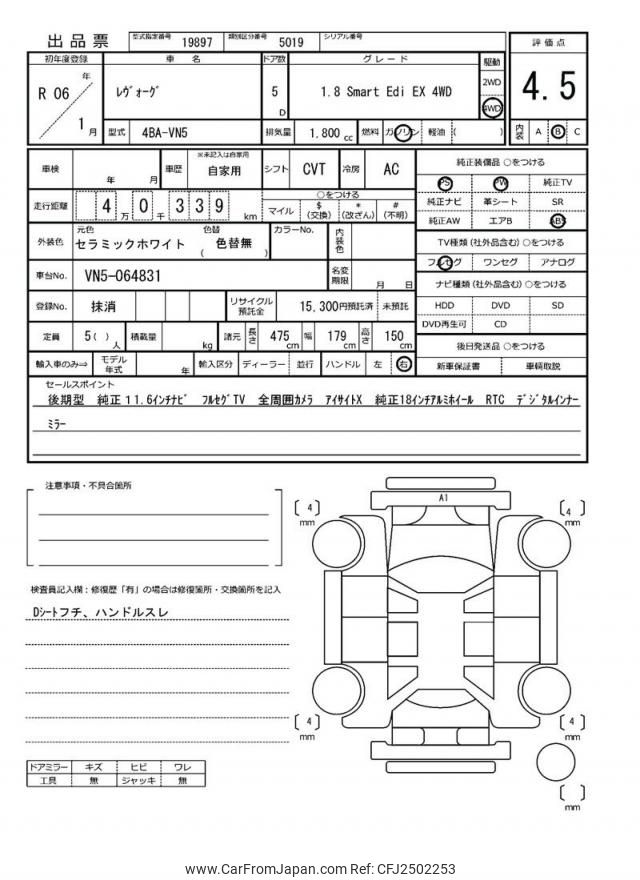 出品票 型式指定番号 19897 類別区分番号 5019 シリアル番号
初年度登録 車名 ドア数 グレード 駆動 評価点
R 06 年 1 月 ﾚヴｫｰグ 5 D 1.8 Smart Edi EX 4WD 2WD 4WD 4.5
型式 4BA-VN5 排気量 1.800 cc 燃料 ガソリン 軽油 ( ) 内装 A B C
車検 年 月 車歴 ※未記入は自家用 自家用 シフト CVT 冷房 AC 純正装備品 ○をつける
PS PW 純正TV
走行距離 4 万 0 千 3 3 9 km ○をつける マイル $ (交換) * (改ざん) # (不明) 純正ナビ 革シート SR
純正AW エアB ABS
外装色 元色 セラミックホワイト 色替 ( 色替無 ) カラーNo. 内装色 TV種類 (社外品含む) ○をつける
フルセグ ワンセグ アナログ
車台No. VN5-064831 名変期限 月 日 ナビ種類 (社外品含む) ○をつける
登録No. 抹消 リサイクル預託金 15,300円預託済 未預託 HDD DVD SD
DVD再生可 CD
定員 5 ( ) 人 積載量 kg 諸元 長さ 475 cm 幅 179 cm 高さ 150 cm 後日発送品 ○をつける
輸入車のみ⇒ モデル年式 年 輸入区分 ディーラー 並行 ハンドル 左 右 新車保証書 車輌取説
セールスポイント
後期型 純正11.6ｲﾝﾁﾅﾋﾞ ﾌﾙｾｸﾞTV 全周囲ｶﾒﾗ ｱｲｻｲﾄX 純正18ｲﾝﾁｱﾙﾐﾎｲｰﾙ RTC ﾃﾞｼﾞﾀﾙｲﾝﾅｰ
ﾐﾗｰ
注意事項・不具合箇所
検査員記入欄：修復歴「有」の場合は修復箇所・交換箇所を記入
Dｼｰﾄフチ、ハンドルスレ
A1
4 mm
4 mm
4 mm
4 mm
mm
ドアミラー キズ ヒビ ワレ
工具 無 ジャッキ 無
www.CarFromJapan.com Ref: CFJ2502253